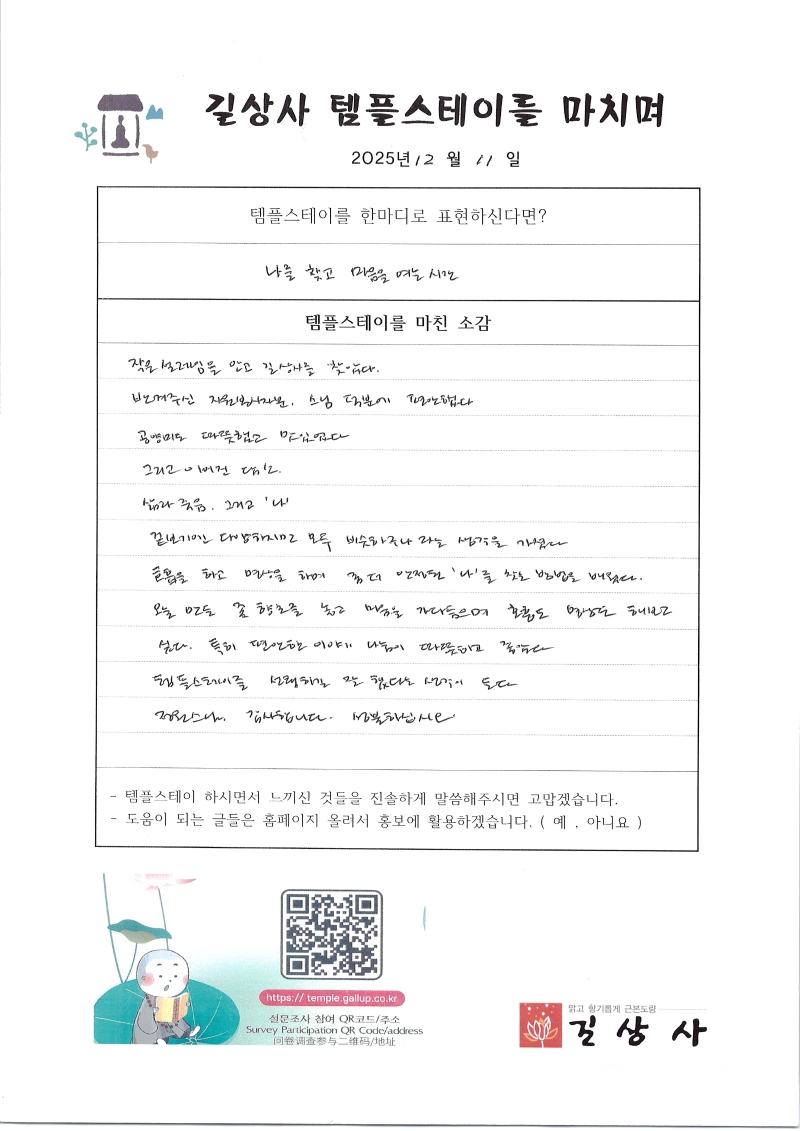 길상사 템플스테이를 마치며
2025년 12 월 11 일
템플스테이를 한마디로 표현하신다면?
나를 찾고 마음을 여는 시간
템플스테이를 마친 소감
작은 설레임을 안고 길상사를 찾았다.
반겨주신 자원봉사자분, 스님 덕분에 편안했다
공양미도 따뜻했고 맛있었다
그리고 이어진
삶과 죽음, 그리고 '나'
겉보기엔 다양하지만 모두 비슷하구나 라는 생각을 가졌다
호흡을 하고 명상을 하며 좀 더 안정된 '나'를 찾는 방법을 배웠다.
오늘 만든 향초를 놓고 마음을 가다듬으며 호흡도 명상도 해보고
싶다. 특히 편안한 이야기 나눔이 따뜻하고 좋았다
템플스테이를 선택하길 잘 했다는 생각이 든다
스님, 감사합니다. 성불하십시오
- 템플스테이 하시면서 느끼신 것들을 진솔하게 말씀해주시면 고맙겠습니다.
- 도움이 되는 글들은 홈페이지 올려서 홍보에 활용하겠습니다. ( 예 , 아니요 )
https:// temple.gallup.co.kr
설문조사 참여 QR코드/주소
Survey Participation QR Code/address
问卷调查参与二维码/地址
맑고 향기롭게 근본도량
길상사